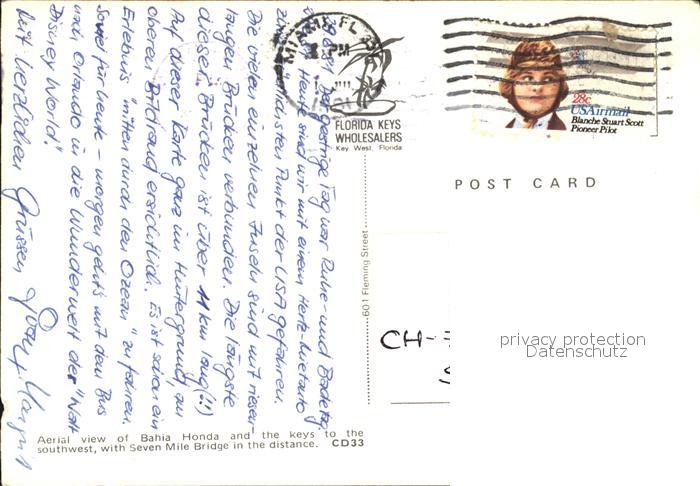 MIAMI, FL
PM
FLORIDA KEYS
WHOLESALERS
Key West, Florida
28c
USAirmail
Blanche Stuart Scott
Pioneer Pilot
POST CARD
601 Fleming Street
gestrige Tag war Ruhe- und Badetag.
Heute sind wir mit einem Hertz-Mietauto
zum südlichsten Punkt der USA gefahren.
Die vielen einzelnen Inseln sind mit riesen-
langen Brücken verbunden. Die längste
dieser Brücken ist über 11 km lang(!!)
Auf dieser Karte ganz im Hintergrund, am
oberen Bildrand ersichtlich. Es ist schon ein
Erlebnis "mitten durch den Ozean" zu fahren.
Soviel für heute - morgen geht's mit dem Bus
nach Orlando in die Wunderwelt der "Walt
Disney World".
Mit herzlichen Grüssen
CH-
privacy protection
Datenschutz
Aerial view of Bahia Honda and the keys to the
southwest, with Seven Mile Bridge in the distance. CD33